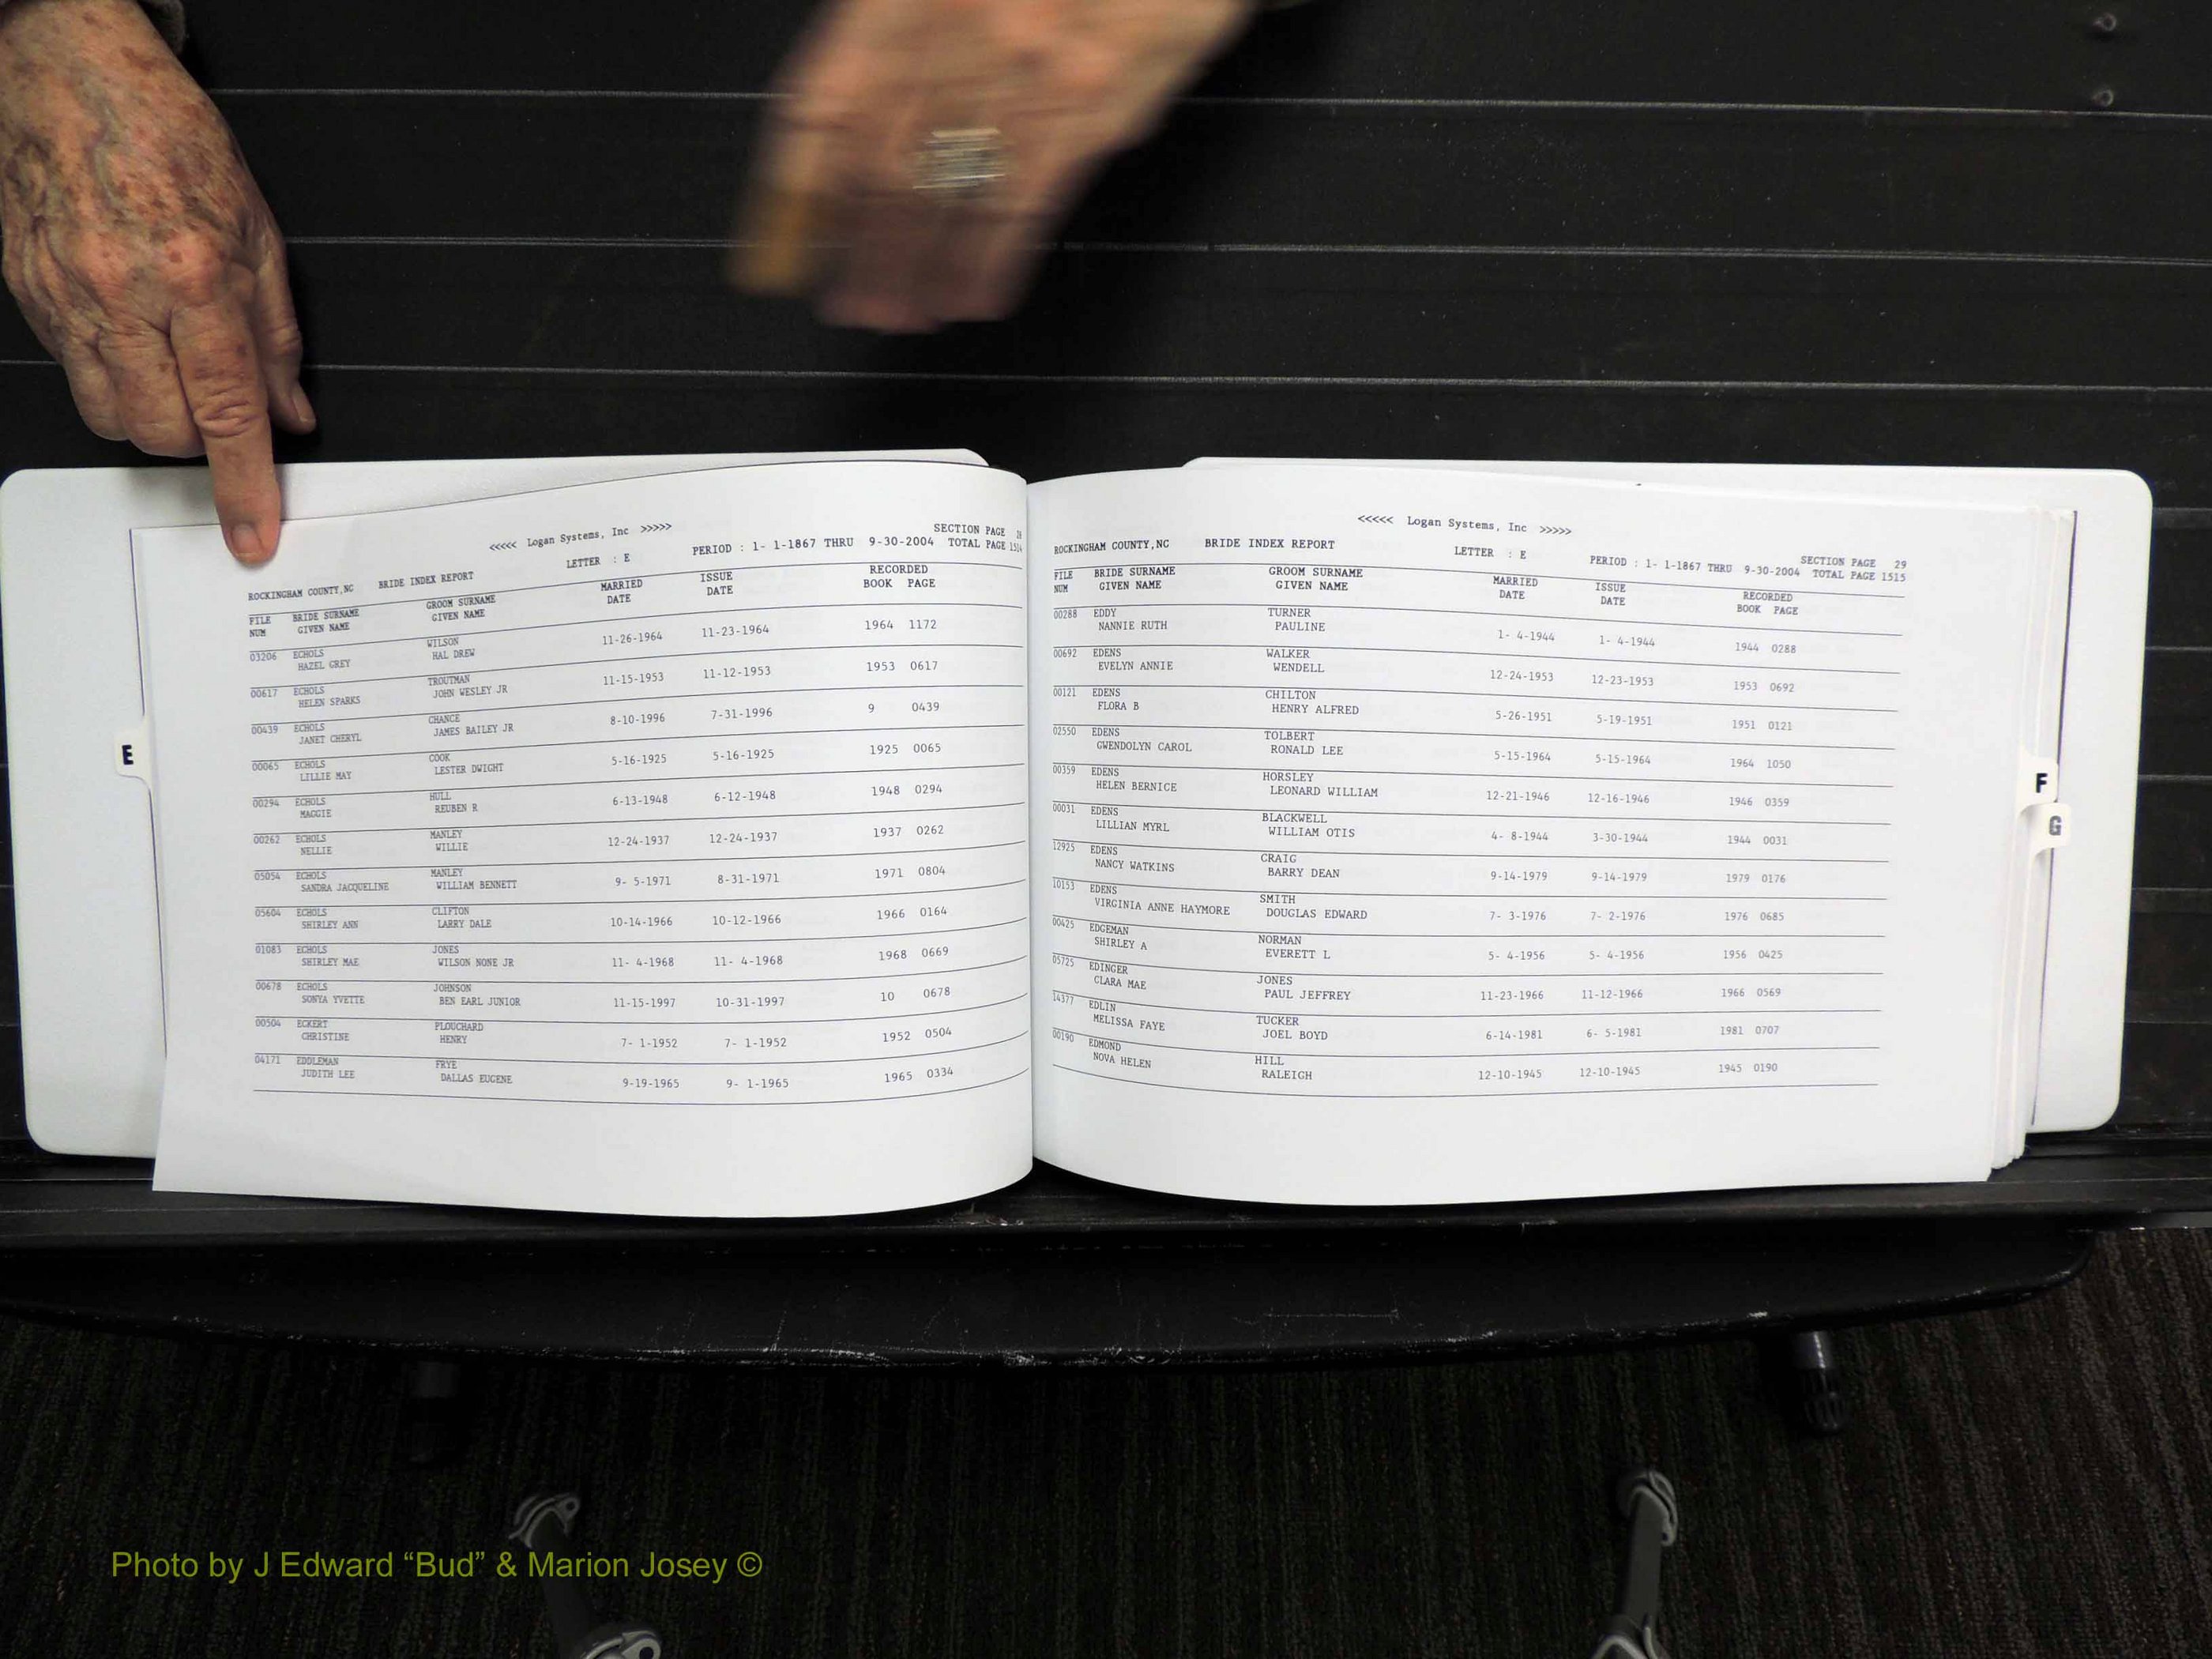 <<<<< Logan Systems, Inc >>>>>
SECTION PAGE 28
ROCKINGHAM COUNTY,NC BRIDE INDEX REPORT LETTER : E PERIOD : 1- 1-1867 THRU 9-30-2004 TOTAL PAGE 1514
FILE BRIDE SURNAME GROOM SURNAME MARRIED ISSUE RECORDED
NUM GIVEN NAME GIVEN NAME DATE DATE BOOK PAGE
03206 ECHOLS WILSON 11-26-1964 11-23-1964 1964 1172
HAZEL GREY HAL DREW
00617 ECHOLS TROUTMAN 11-15-1953 11-12-1953 1953 0617
HELEN SPARKS JOHN WESLEY JR
00439 ECHOLS CHANCE 8-10-1996 7-31-1996 9 0439
JANET CHERYL JAMES BAILEY JR
00065 ECHOLS COOK 5-16-1925 5-16-1925 1925 0065
LILLIE MAY LESTER DWIGHT
00294 ECHOLS HULL 6-13-1948 6-12-1948 1948 0294
MAGGIE REUBEN R
00262 ECHOLS MANLEY 12-24-1937 12-24-1937 1937 0262
NELLIE WILLIE
05054 ECHOLS MANLEY 9- 5-1971 8-31-1971 1971 0804
SANDRA JACQUELINE WILLIAM BENNETT
05604 ECHOLS CLIFTON 10-14-1966 10-12-1966 1966 0164
SHIRLEY ANN LARRY DALE
01083 ECHOLS JONES 11- 4-1968 11- 4-1968 1968 0669
SHIRLEY MAE WILSON NONE JR
00678 ECHOLS JOHNSON 11-15-1997 10-31-1997 10 0678
SONYA YVETTE BEN EARL JUNIOR
00504 ECKERT PLOUCHARD 7- 1-1952 7- 1-1952 1952 0504
CHRISTINE HENRY
04171 EDDLEMAN FRYE 9-19-1965 9- 1-1965 1965 0334
JUDITH LEE DALLAS EUGENE
E
<<<<< Logan Systems, Inc >>>>>
SECTION PAGE 29
ROCKINGHAM COUNTY,NC BRIDE INDEX REPORT LETTER : E PERIOD : 1- 1-1867 THRU 9-30-2004 TOTAL PAGE 1515
FILE BRIDE SURNAME GROOM SURNAME MARRIED ISSUE RECORDED
NUM GIVEN NAME GIVEN NAME DATE DATE BOOK PAGE
00288 EDDY TURNER 1- 4-1944 1- 4-1944 1944 0288
NANNIE RUTH PAULINE
00692 EDENS WALKER 12-24-1953 12-23-1953 1953 0692
EVELYN ANNIE WENDELL
00121 EDENS CHILTON 5-26-1951 5-19-1951 1951 0121
FLORA B HENRY ALFRED
02550 EDENS TOLBERT 5-15-1964 5-15-1964 1964 1050
GWENDOLYN CAROL RONALD LEE
00359 EDENS HORSLEY 12-21-1946 12-16-1946 1946 0359
HELEN BERNICE LEONARD WILLIAM
00031 EDENS BLACKWELL 4- 8-1944 3-30-1944 1944 0031
LILLIAN MYRL WILLIAM OTIS
12925 EDENS CRAIG 9-14-1979 9-14-1979 1979 0176
NANCY WATKINS BARRY DEAN
10153 EDENS SMITH 7- 3-1976 7- 2-1976 1976 0685
VIRGINIA ANNE HAYMORE DOUGLAS EDWARD
00425 EDGEMAN NORMAN 5- 4-1956 5- 4-1956 1956 0425
SHIRLEY A EVERETT L
05725 EDINGER JONES 11-23-1966 11-12-1966 1966 0569
CLARA MAE PAUL JEFFREY
14377 EDLIN TUCKER 6-14-1981 6- 5-1981 1981 0707
MELISSA FAYE JOEL BOYD
00190 EDMOND HILL 12-10-1945 12-10-1945 1945 0190
NOVA HELEN RALEIGH
F
G
Photo by J Edward “Bud” & Marion Josey ©